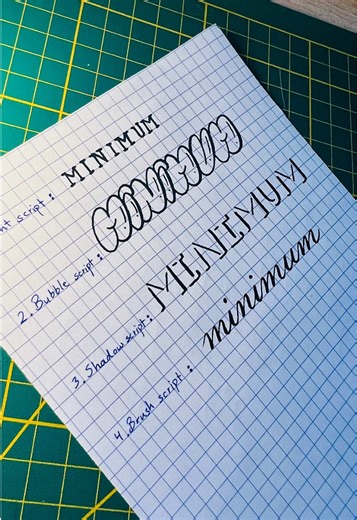 nt script: MINIMUM
2. Bubble script: MINIMUM
3. Shadow script: MINIMUM
4. Brush script: minimum